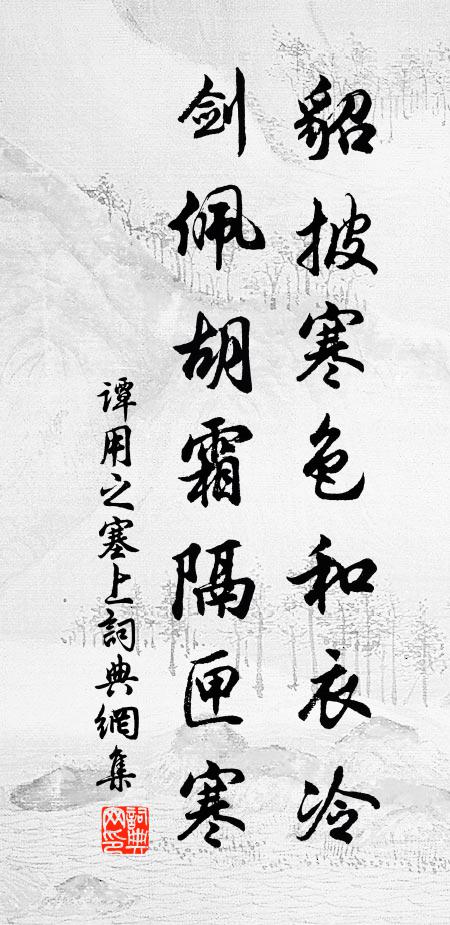 貂披寒色和衣冷
剑佩胡霜隔匣寒
谭用之塞上詞典網集
詞典网印